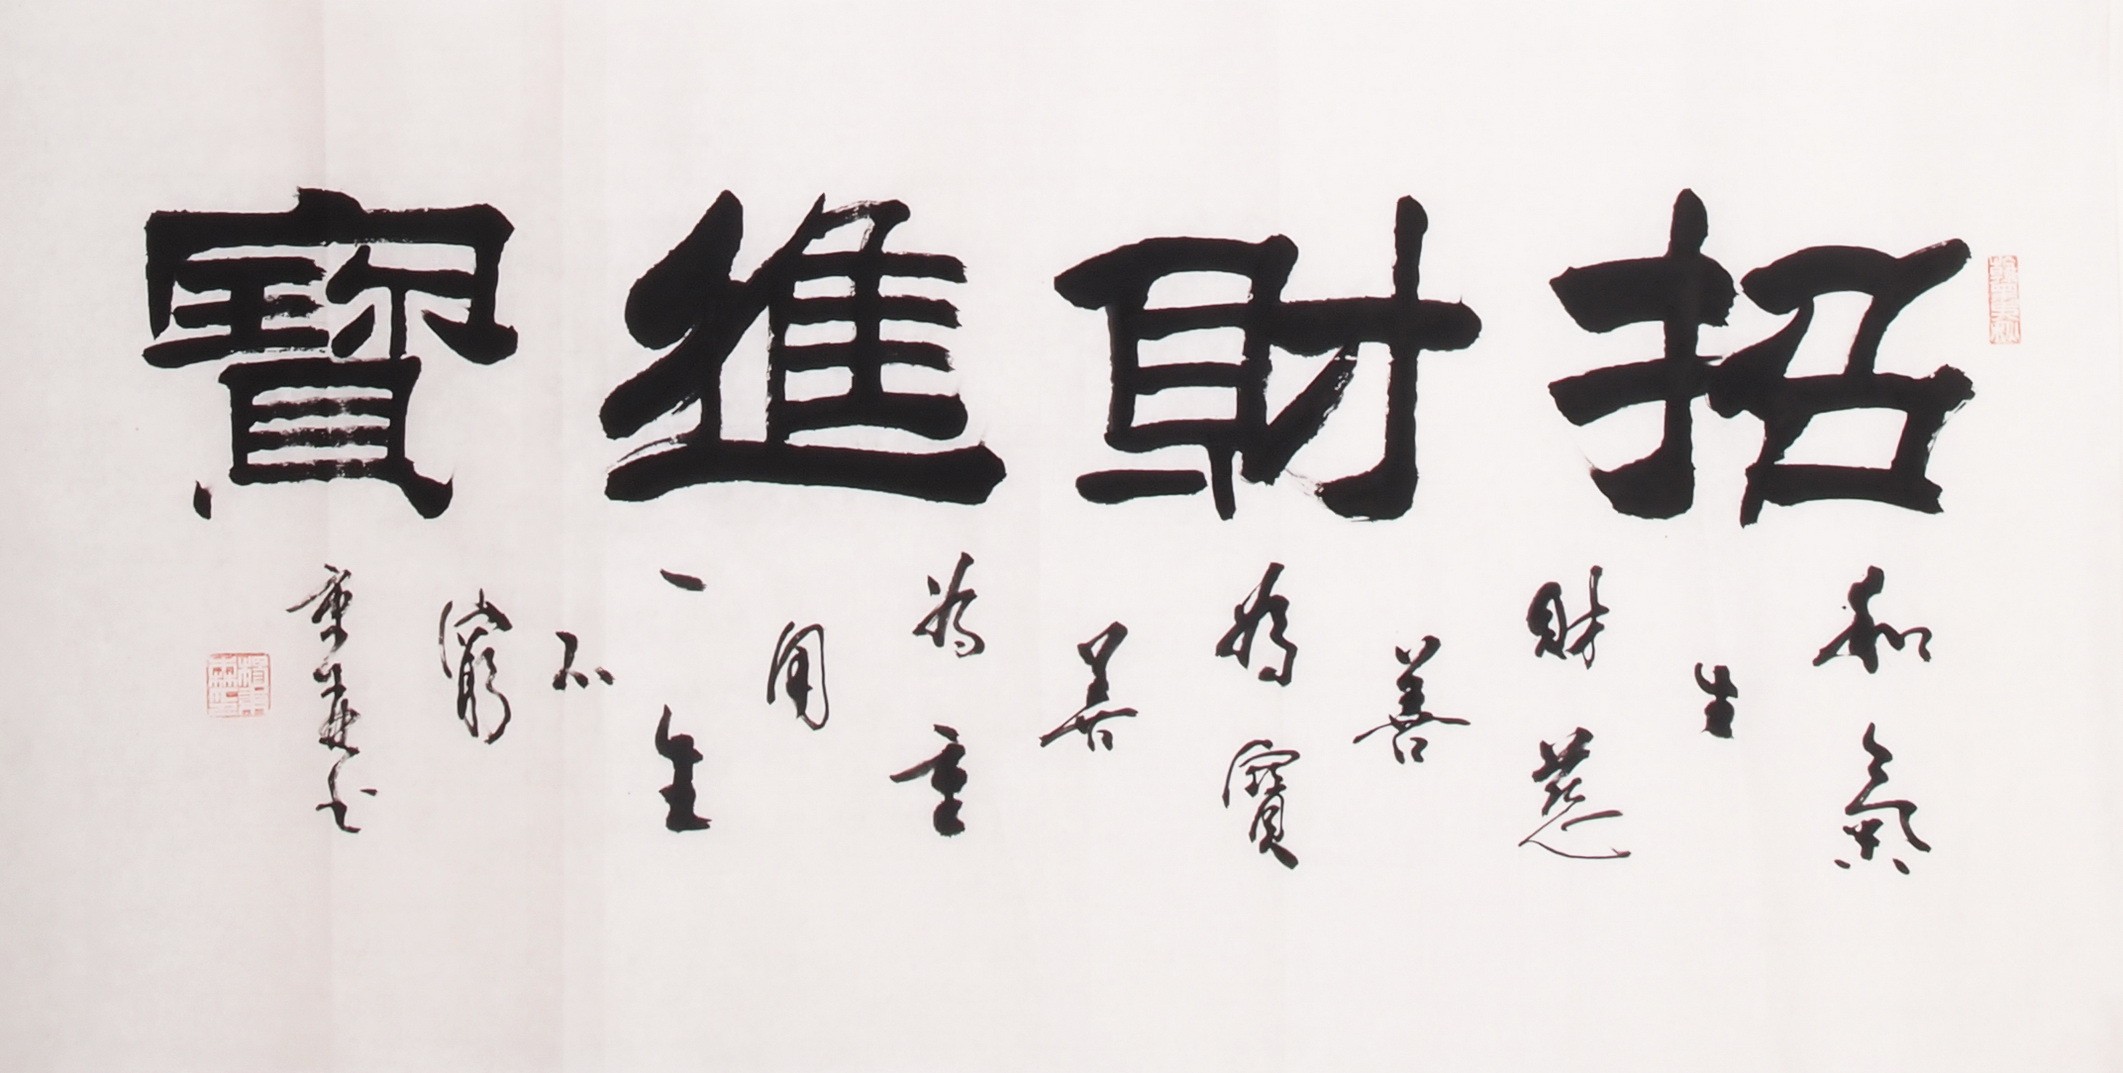 招財進寶
和氣
生
財慈
善
為寶
善
為重
用
一生
不
窮